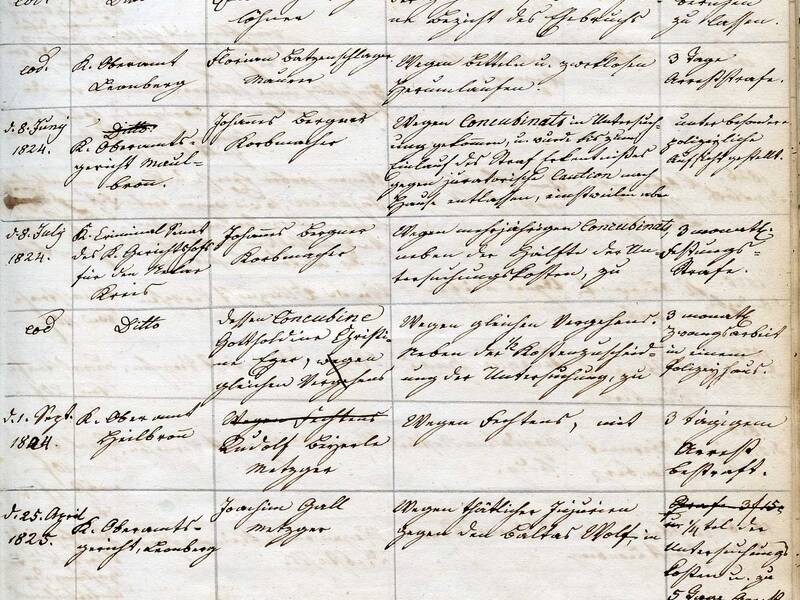 löhner
ne Bezicht des Ehebruchs
zu lassen.
eod.
K. Oberamt
Leonberg
Florian Batzenschlager
Maurer
Wegen Betteln u. zwecklosen
Herumlaufen.
3 Tage
Arreststrafe.
d. 8. Juny
1824.
Ditto.
K. Oberamts-
gericht Maul-
bronn.
Johannes Bergner
Korbmacher
Wegen Concubinats in Untersuch-
ung gekommen, u. wurde bis zum
Einlauf des Straf erkenntnißes
gegen juratorische Caution nach
Hause entlassen, einstweilen aber
unter besondere
polizeyliche
Aufsicht gestellt.
d. 8. July
1824.
K. Criminal Senat
des K. Gerichtshofs
für den Neckar
Kreis
Johannes Bergner
Korbmacher
Wegen mehrjährigen Concubinats,
neben der Hälfte der Un-
tersuchungskosten, zu
3 monatl.
Festungs-
Strafe.
eod
Ditto
dessen Concubine
Gottholdine Christi-
ne Eger, wegen
gleichen Vergehens
Wegen gleichen Vergehens.
Neben der 1/2 Kostenzuscheid-
ung der Untersuchung, zu
3 monatl.
Zwangsarbeit
in einem
Polizeyhaus.
d. 1. Sept.
1824.
K. Oberamt
Heilbronn
Wegen Fechtens
Rudolf Beyerle
Metzger
Wegen Fechtens, mit
3 tägigem
Arrest
bestraft.
d. 25. April
1825.
K. Oberamts-
gericht, Leonberg
Joachim Gall
Metzger
Wegen thätlicher Injurien
gegen den Baltas Wolf, in
Strafe 3 f 15
1/4 tel der
Untersuchungs
kosten u. zu
5